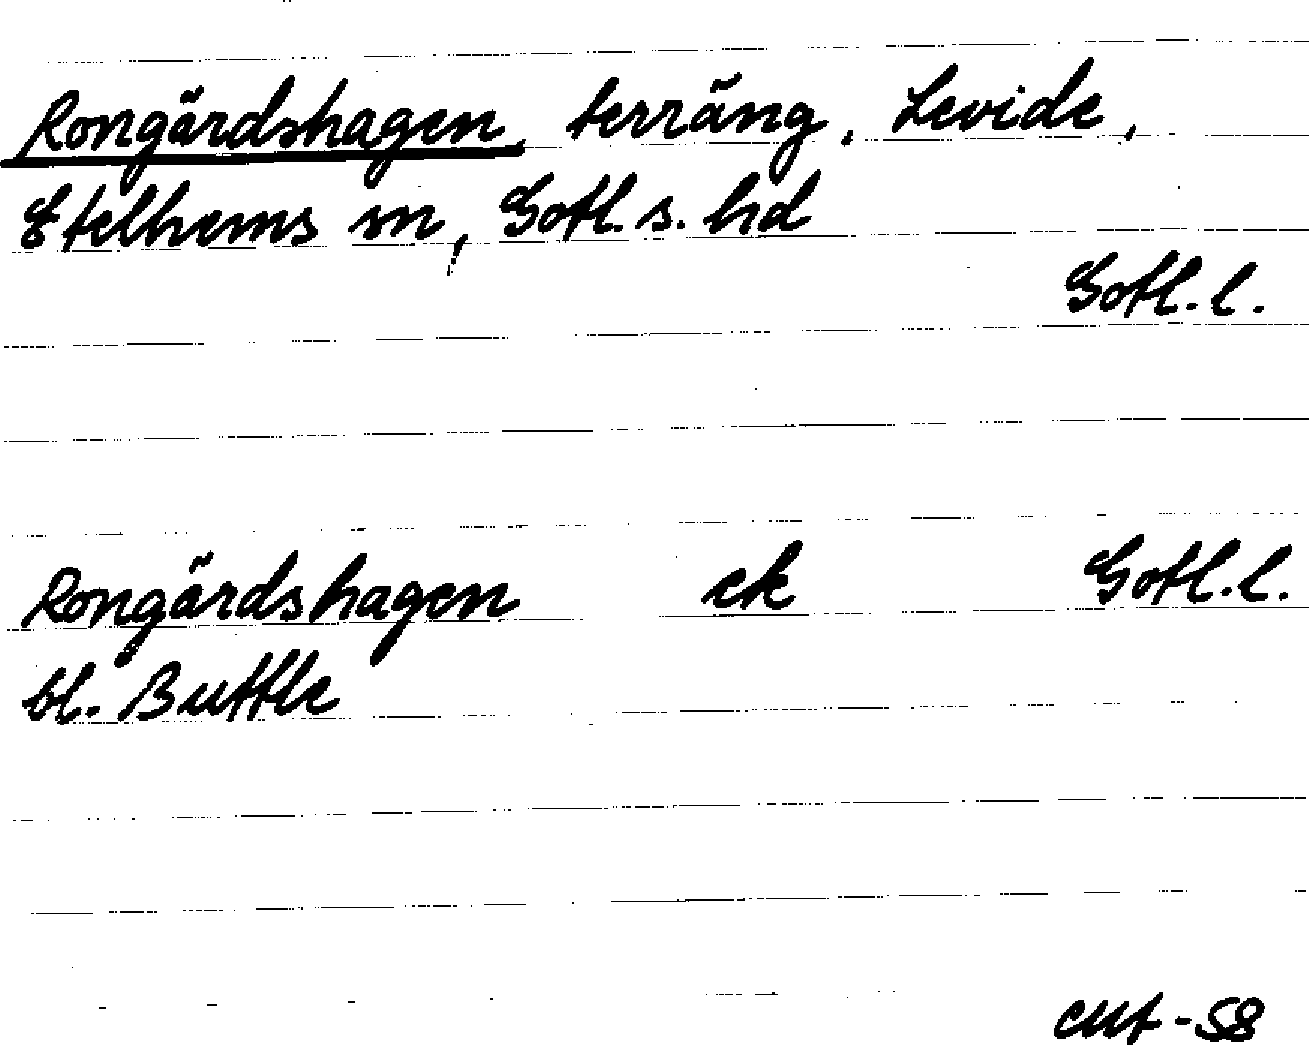 Rongärdshagen, terräng, Levide,
Etelhems sn, Gotl. s. hd
Gotl. l.
Rongärdshagen ek Gotl. l.
bl. Buttle
CMf-58